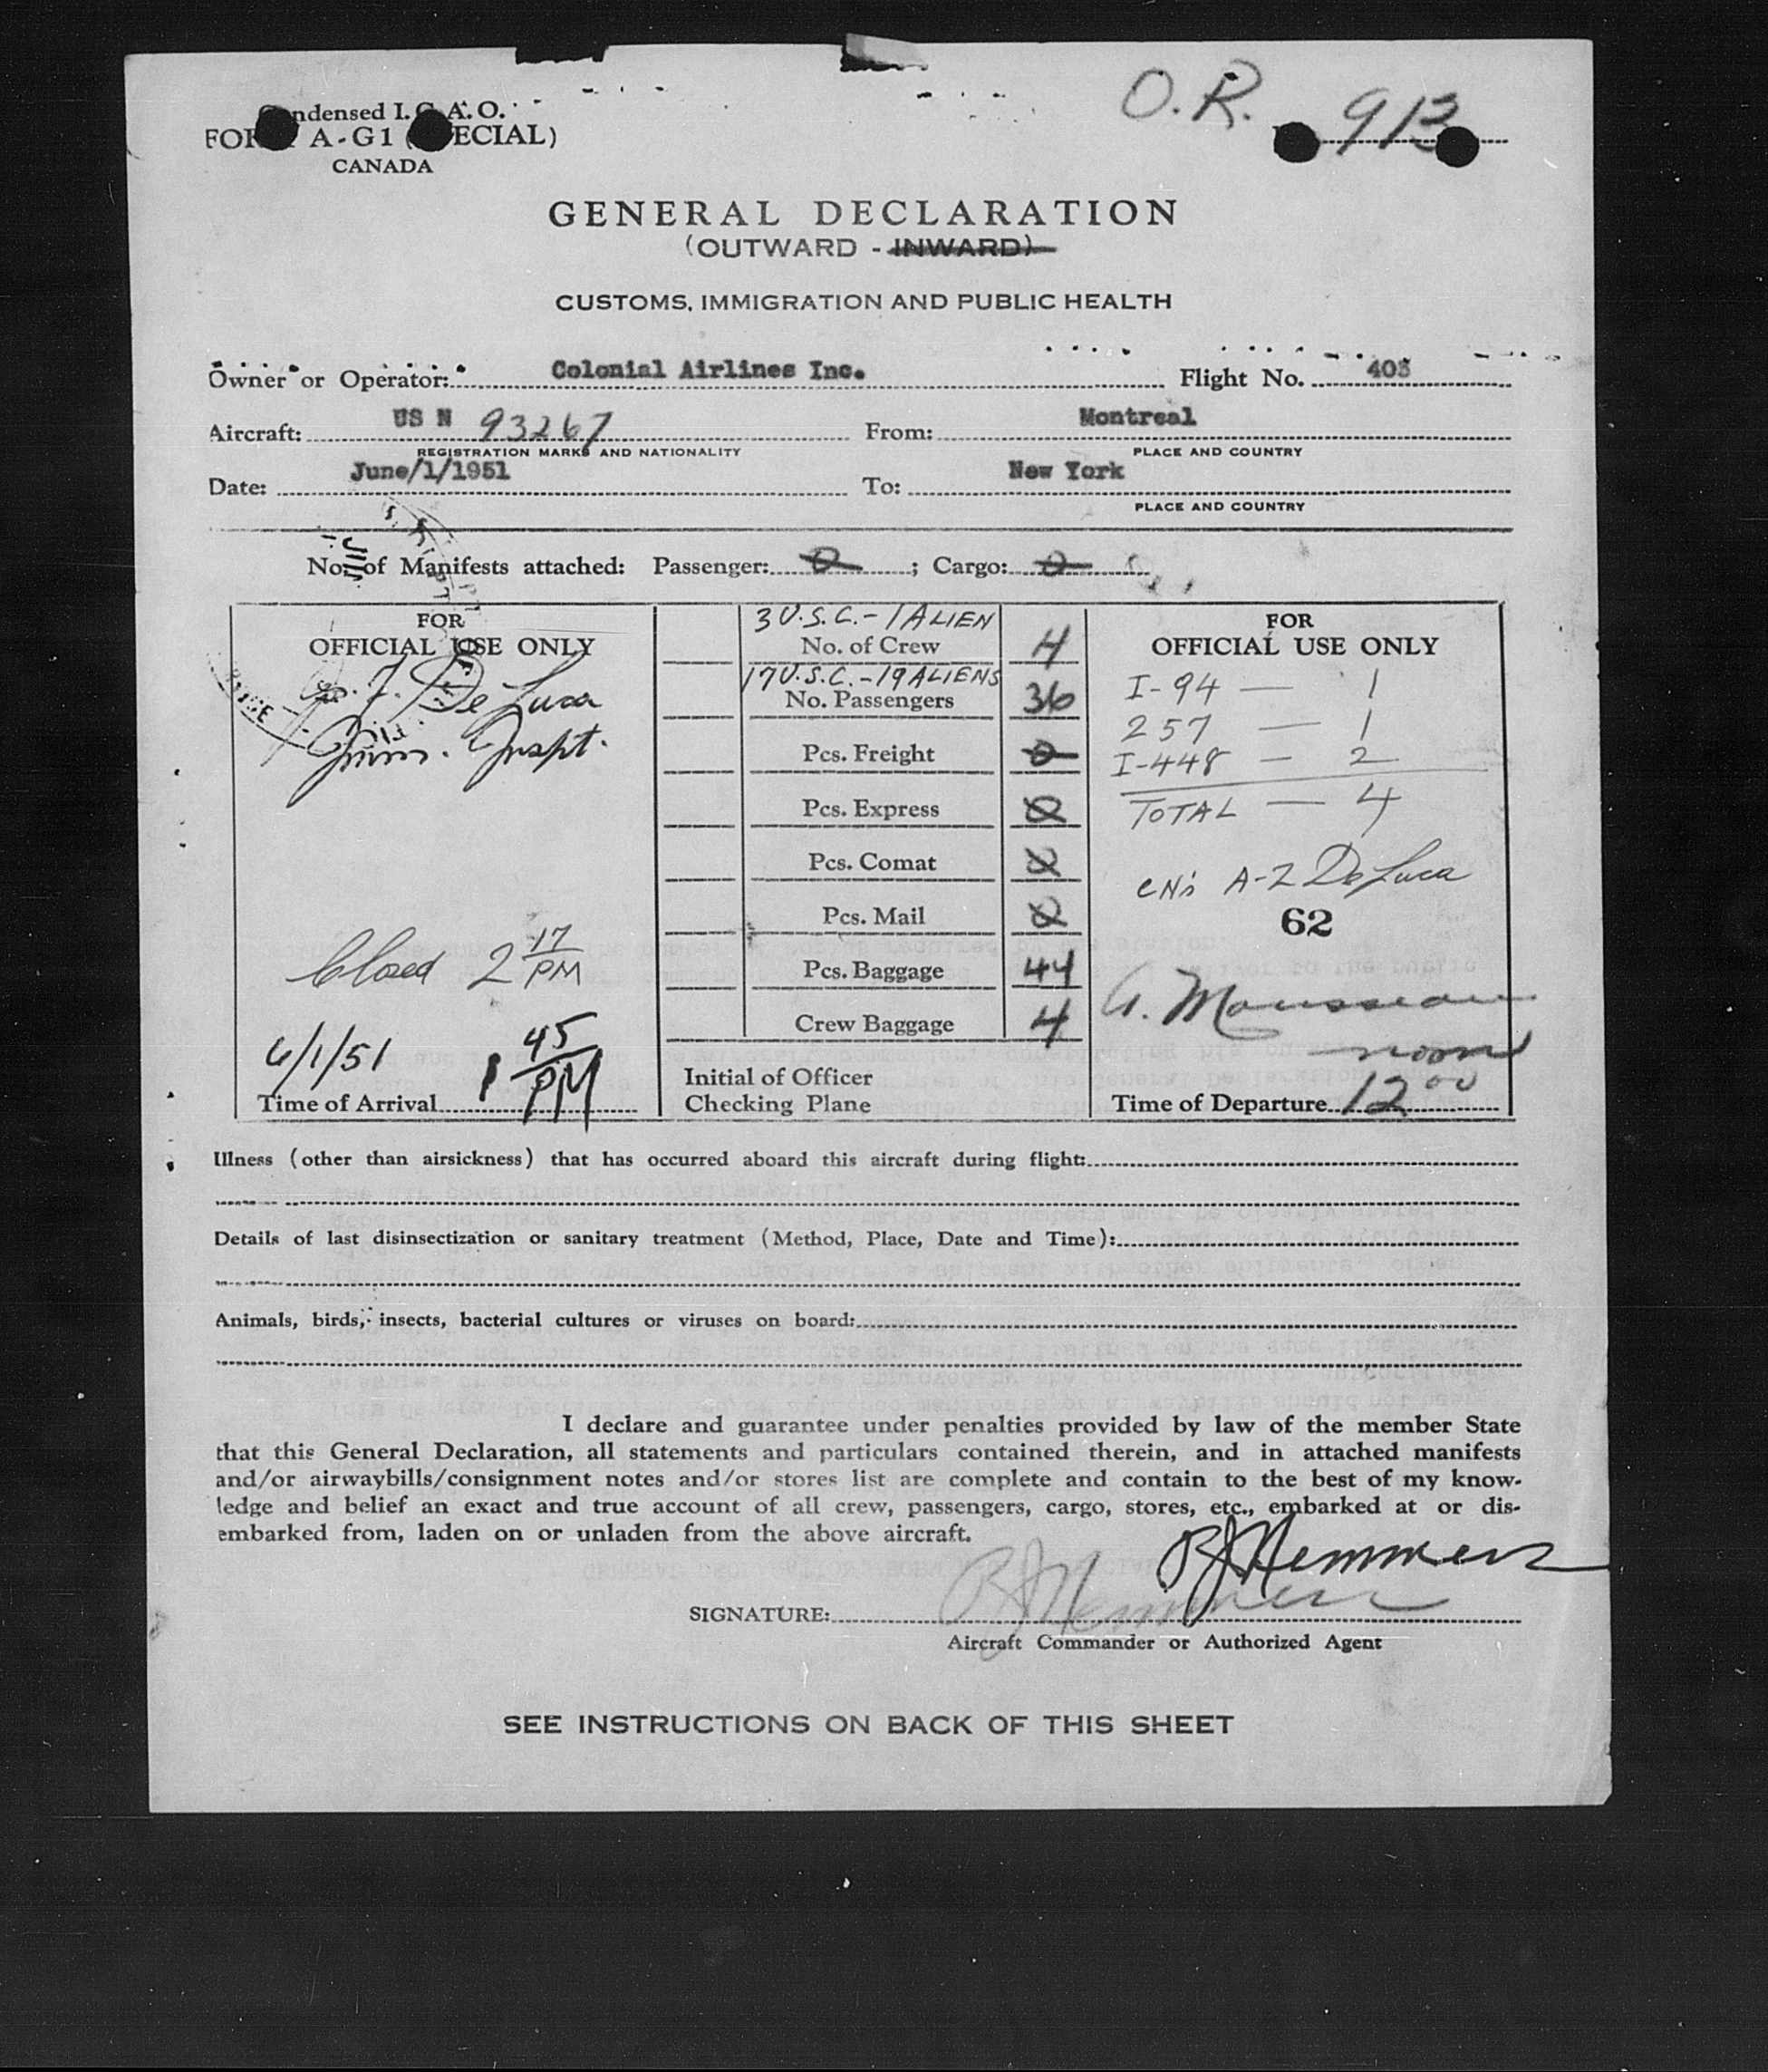 O. R. 913
Condensed I.C.A.O.
FORM A-G1 (SPECIAL)
CANADA
GENERAL DECLARATION
(OUTWARD - INWARD)
CUSTOMS, IMMIGRATION AND PUBLIC HEALTH
Owner or Operator: Colonial Airlines Inc. Flight No. 403
Aircraft: US N 93267 From: Montreal
REGISTRATION MARKS AND NATIONALITY PLACE AND COUNTRY
Date: June/1/1951 To: New York
PLACE AND COUNTRY
No. of Manifests attached: Passenger: 0 ; Cargo: 0
FOR
OFFICIAL USE ONLY
De Luca
Imm. Inspt.
Closed 2 17 PM
6/1/51 1 45 PM
Time of Arrival
3 U.S.C. - 1 ALIEN
No. of Crew 4
17 U.S.C. - 19 ALIENS
No. Passengers 36
Pcs. Freight 0
Pcs. Express 0
Pcs. Comat 0
Pcs. Mail 0
Pcs. Baggage 44
Crew Baggage 4
Initial of Officer
Checking Plane
FOR
OFFICIAL USE ONLY
I-94 — 1
257 — 1
I-448 — 2
TOTAL — 4
CN's A-Z De Luca
62
A. Mousseau
noon
Time of Departure 12 00
Illness (other than airsickness) that has occurred aboard this aircraft during flight:
Details of last disinsectization or sanitary treatment (Method, Place, Date and Time):
Animals, birds, insects, bacterial cultures or viruses on board:
I declare and guarantee under penalties provided by law of the member State
that this General Declaration, all statements and particulars contained therein, and in attached manifests
and/or airwaybills/consignment notes and/or stores list are complete and contain to the best of my know-
ledge and belief an exact and true account of all crew, passengers, cargo, stores, etc., embarked at or dis-
embarked from, laden on or unladen from the above aircraft.
SIGNATURE: BJ Hemmers
BJ Hemmers
Aircraft Commander or Authorized Agent
SEE INSTRUCTIONS ON BACK OF THIS SHEET